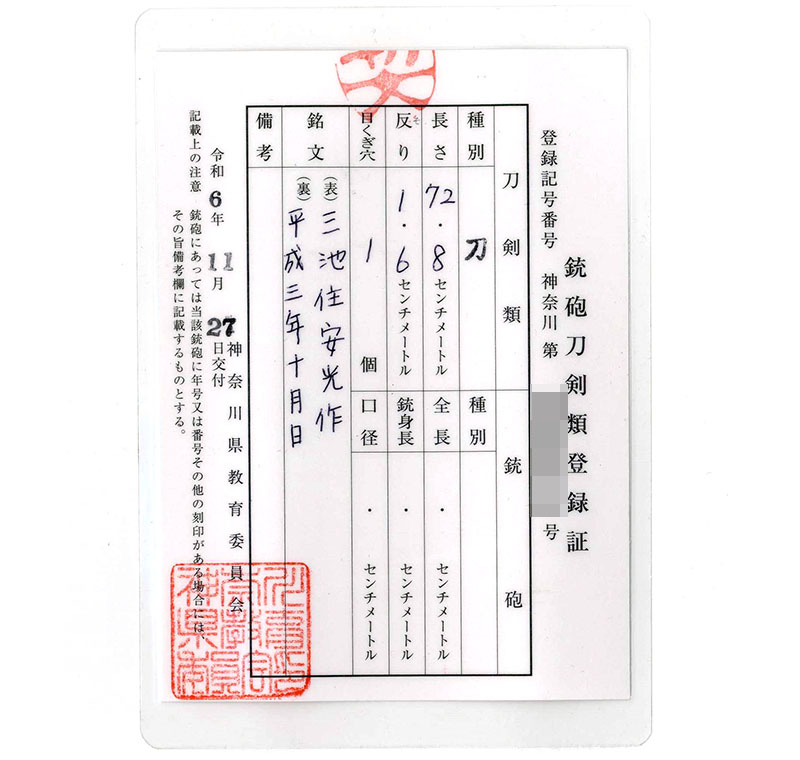 銃砲刀剣類登録証
登録記号番号 神奈川 第 号
刀剣類
銃砲
種別 刀
種別
長さ 72.8センチメートル
全長 ・ センチメートル
反り 1.6センチメートル
銃身長 ・ センチメートル
目くぎ穴 1 個
口径 ・ センチメートル
銘文 (表) 三池住安光作
(裏) 平成三年十月日
備考
神奈川県教育委員会
令和6年11月27日交付
記載上の注意 銃砲にあっては当該銃砲に年号又は番号その他の刻印がある場合には、
その旨備考欄に記載するものとする。